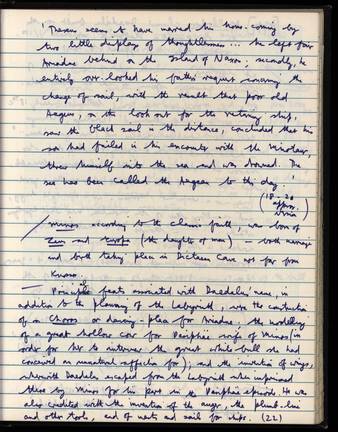 'Theseus seems to have marred his home-coming by
two little displays of thoughtlessness ... he left fair
Ariadne behind on the Island of Naxos; secondly, he
entirely over looked his father's request concerning the
change of sail, with the result that poor old
Aegeus, on the look out for the returning ship,
saw the black sail in the distance, concluded that his
son had failed in his encounter with the Minotaur,
threw himself into the sea and was drowned. The
sea has been called the Aegean to this day.'
(18-20
approx.
Minos according to the classic faith, was born of
Zeus and Europa (the daughter of man) – both marriage
and birth taking place in Dictaean Cave not far from
Knossos.
– Principle feats associated with Daedalus' name, in
addition to the planning of the Labyrinth, was the construction
of a Choros or dancing-place for Ariadne; the modelling
of a great hollow cow for Pasiphae wife of Minos (in
order for her to interview the great white bull she had
conceived an unnatural affection for); and the invention of wings,
wherewith Daedalus escaped from the Labyrinth when imprisoned
there by Minos for his part in the Pasiphae episode. He was
also credited with the invention of the auger, the plumb-line
and other tools, and of masts and sails for ships. (22)